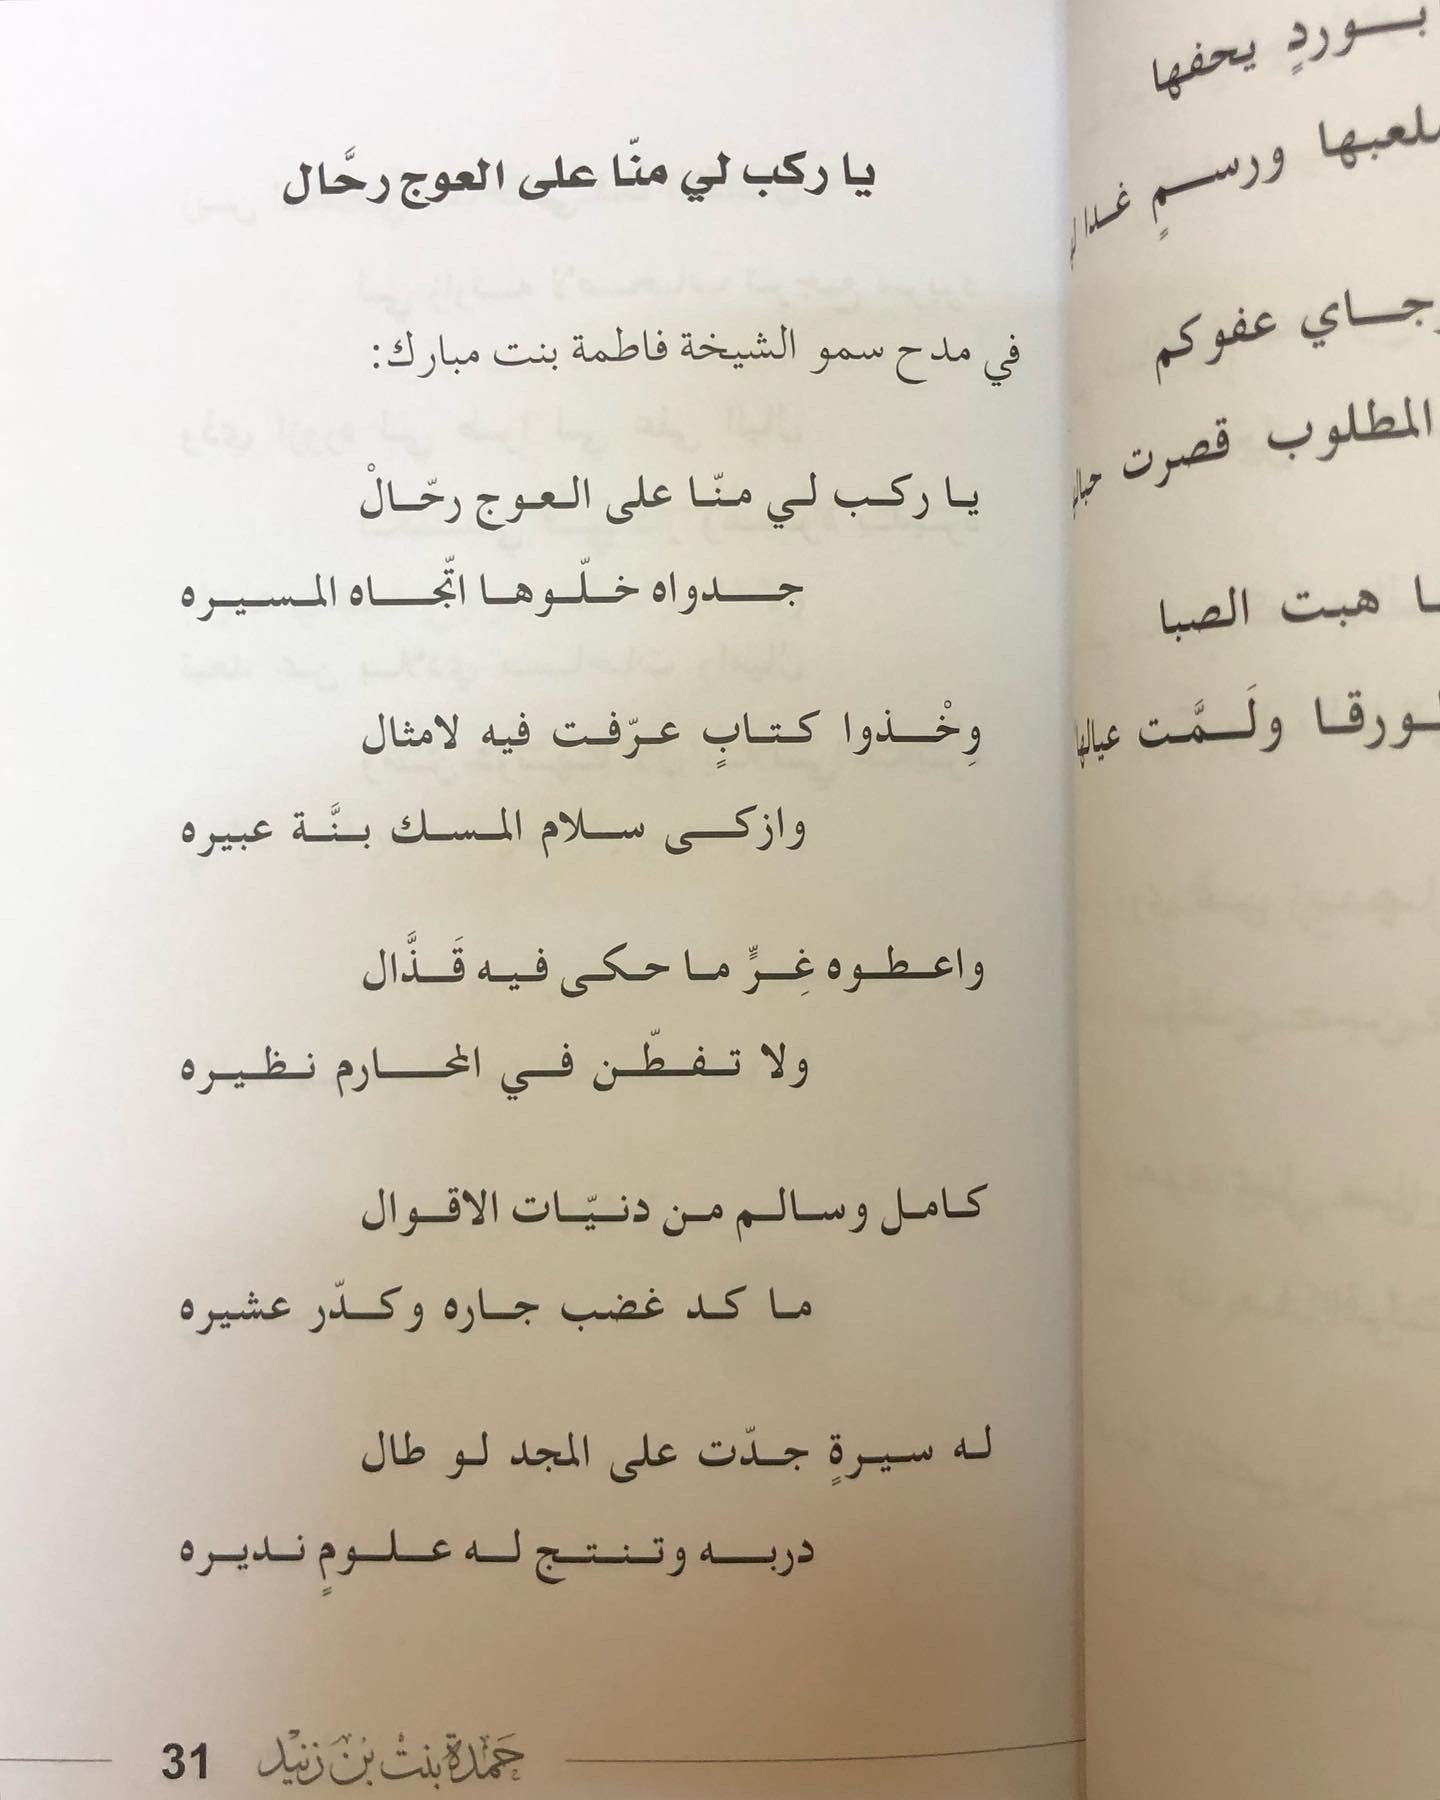 يا ركب لي منّا على العوج رحَّال
في مدح سمو الشيخة فاطمة بنت مبارك:
يا ركب لي منّا على العوج رحّالْ
جدواه خلّوها اتّجاه المسيره
وِخْذوا كتابٍ عرّفت فيه لامثال
وازكى سلام المسك بنَّة عبيره
واعطوه غِرٍّ ما حكى فيه قَذَّال
ولا تفطّن في المحارم نظيره
كامل وسالم من دنيّات الاقوال
ما كد غضب جاره وكدّر عشيره
له سيرةٍ جدّت على المجد لو طال
دربه وتنتج له علومٍ نديره
31 حَمْدَة بنت بن زنيد
بوردٍ يحفها
ورسمٍ غدا
عفوكم
المطلوب قصرت
هبت الصبا
ولَمَّت عيالها